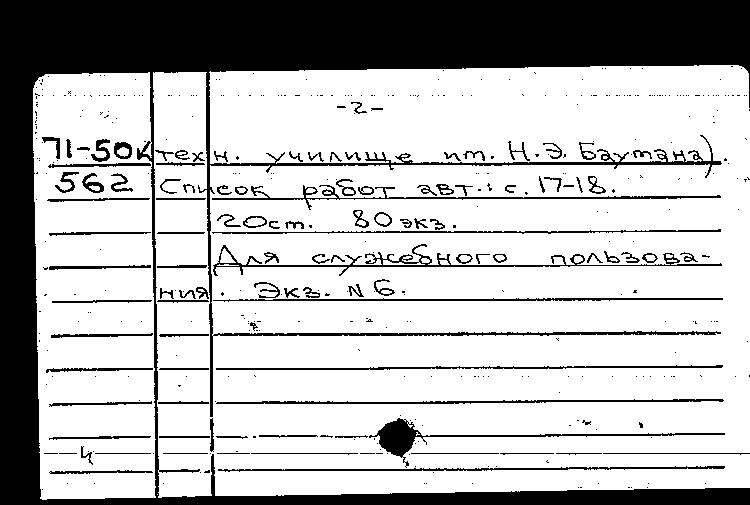 -2-
71-50К техн. училище им. Н.Э. Баумана).
562 Список работ авт.: с. 17-18.
20см. 80 экз.
Для служебного пользова-
ния. Экз. N 6.
ч